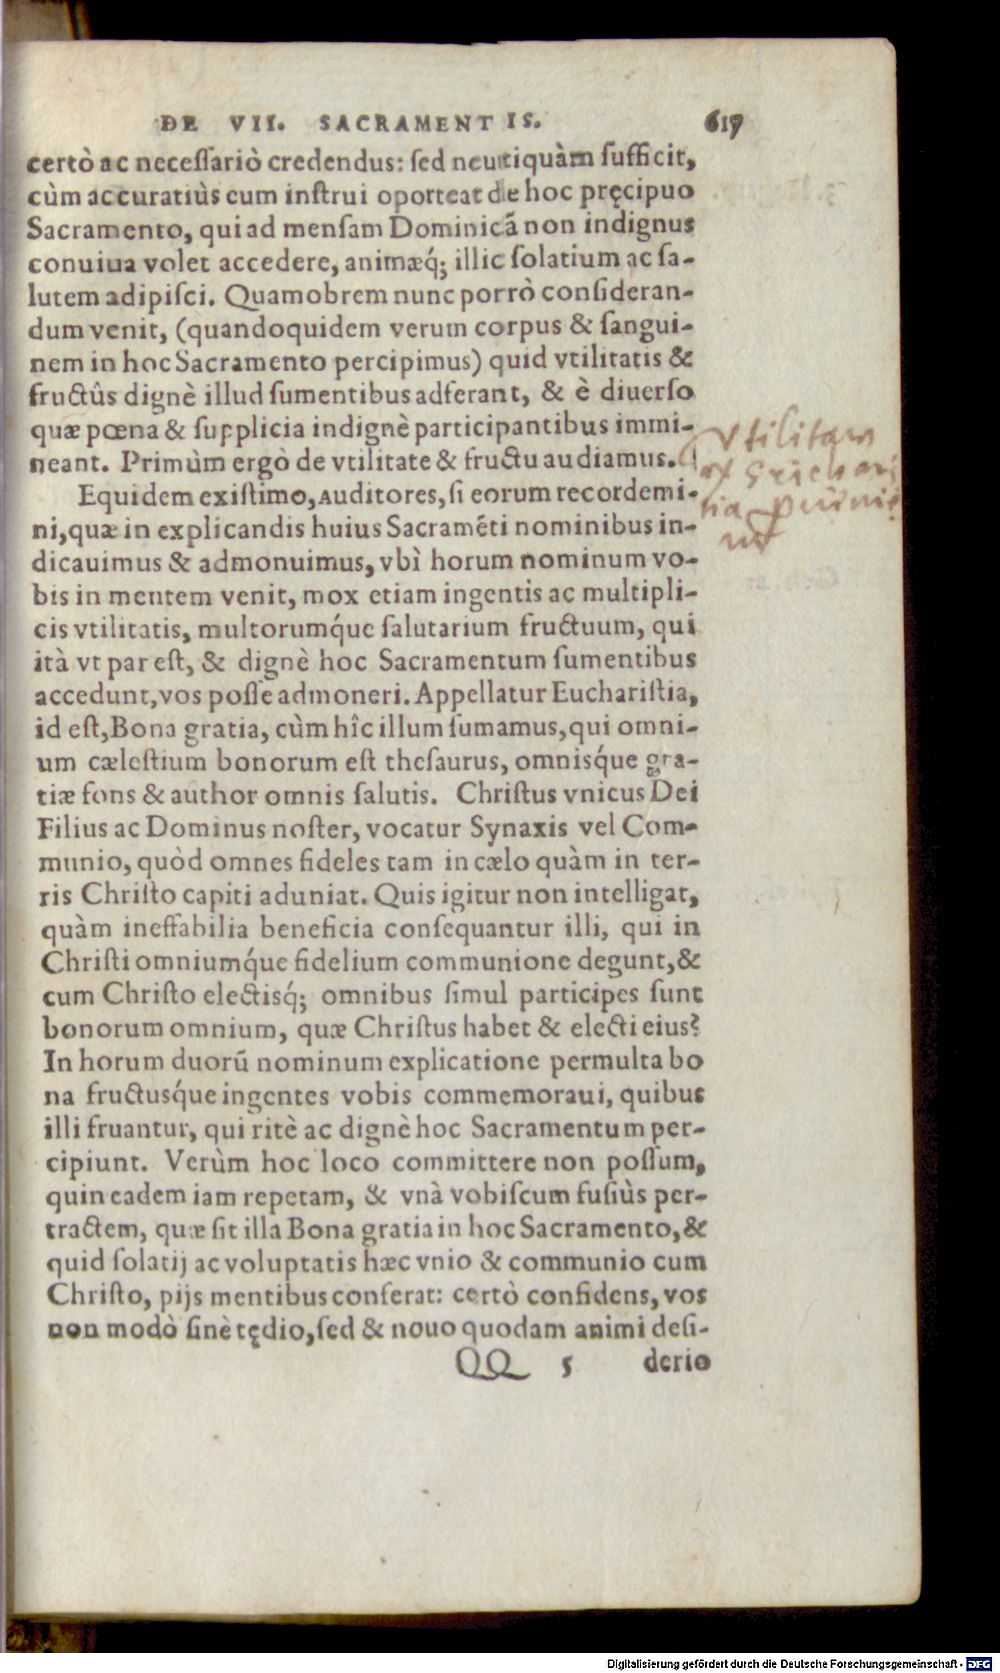 DE VII. SACRAMENTIS. 617
certò ac neceſſariò credendus: ſed neutiquàm ſufficit,
cùm accuratiùs eum inſtrui oporteat de hoc pręcipuo
Sacramento, qui ad menſam Dominicã non indignus
conuiua volet accedere, animæq́; illic ſolatium ac ſa-
lutem adipiſci. Quamobrem nunc porrò conſideran-
dum venit, (quandoquidem verum corpus & ſangui-
nem in hoc Sacramento percipimus) quid vtilitatis &
fructûs dignè illud ſumentibus adferant, & è diuerſo
quæ pœna & ſupplicia indignè participantibus immi-
neant. Primùm ergò de vtilitate & fructu audiamus.
Equidem exiſtimo, Auditores, ſi eorum recordemi-
ni, quæ in explicandis huius Sacramẽti nominibus in-
dicauimus & admonuimus, vbì horum nominum vo-
bis in mentem venit, mox etiam ingentis ac multipli-
cis vtilitatis, multorumq́ue ſalutarium fructuum, qui
ità vt par eſt, & dignè hoc Sacramentum ſumentibus
accedunt, vos poſſe admoneri. Appellatur Euchariſtia,
id eſt, Bona gratia, cùm hîc illum ſumamus, qui omni-
um cæleſtium bonorum eſt theſaurus, omnisq́ue gra-
tiæ fons & author omnis ſalutis. Chriſtus vnicus Dei
Filius ac Dominus noſter, vocatur Synaxis vel Com-
munio, quòd omnes fideles tam in cælo quàm in ter-
ris Chriſto capiti aduniat. Quis igitur non intelligat,
quàm ineffabilia beneficia conſequantur illi, qui in
Chriſti omniumq́ue fidelium communione degunt, &
cum Chriſto electisq́; omnibus ſimul participes ſunt
bonorum omnium, quæ Chriſtus habet & electi eius?
In horum duorũ nominum explicatione permulta bo
na fructusq́ue ingentes vobis commemoraui, quibus
illi fruantur, qui ritè ac dignè hoc Sacramentum per-
cipiunt. Verùm hoc loco committere non poſſum,
quin eadem iam repetam, & vnà vobiſcum fuſiùs per-
tractem, quæ ſit illa Bona gratia in hoc Sacramento, &
quid ſolatij ac voluptatis hæc vnio & communio cum
Chriſto, pijs mentibus conferat: certò confidens, vos
non modò ſinè tędio, ſed & nouo quodam animi deſi-
QQ 5 derio
Vtilitatem
Digitalisierung gefördert durch die Deutsche Forschungsgemeinschaft - DFG